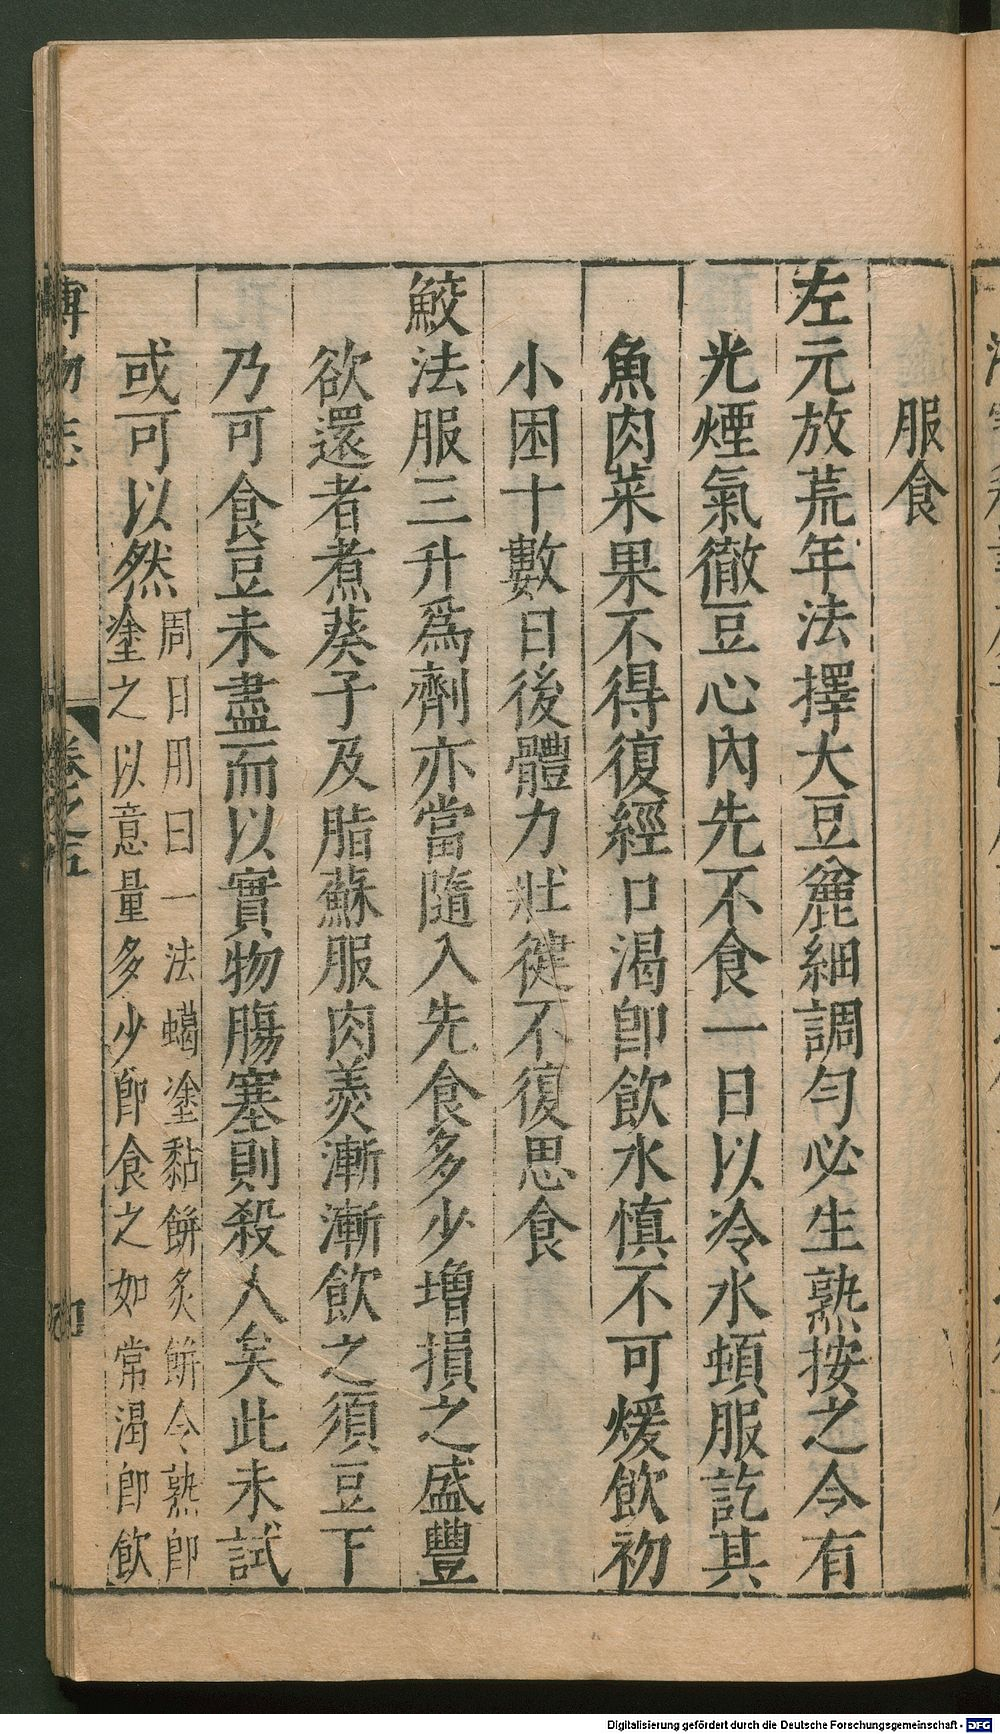 服食
左元放荒年法擇大豆麄細調勻必生熟按之令有
光煙氣徹豆心內先不食一日以冷水頓服訖其
魚肉菜果不得復經口渴即飲水慎不可煖飲初
小困十數日後體力壯健不復思食
鮫法服三升爲劑亦當隨入先食多少增損之盛豐
欲還者煮葵子及脂蘇服肉羙漸漸飲之須豆下
乃可食豆未盡而以實物腸塞則殺人矣此未試
或可以然
周日用曰一法蝎塗黏餅炙餅令熟即
塗之以意量多少即食之如常渴即飲
博物志
卷之五
Digitalisierung gefördert durch die Deutsche Forschungsgemeinschaft - DFG